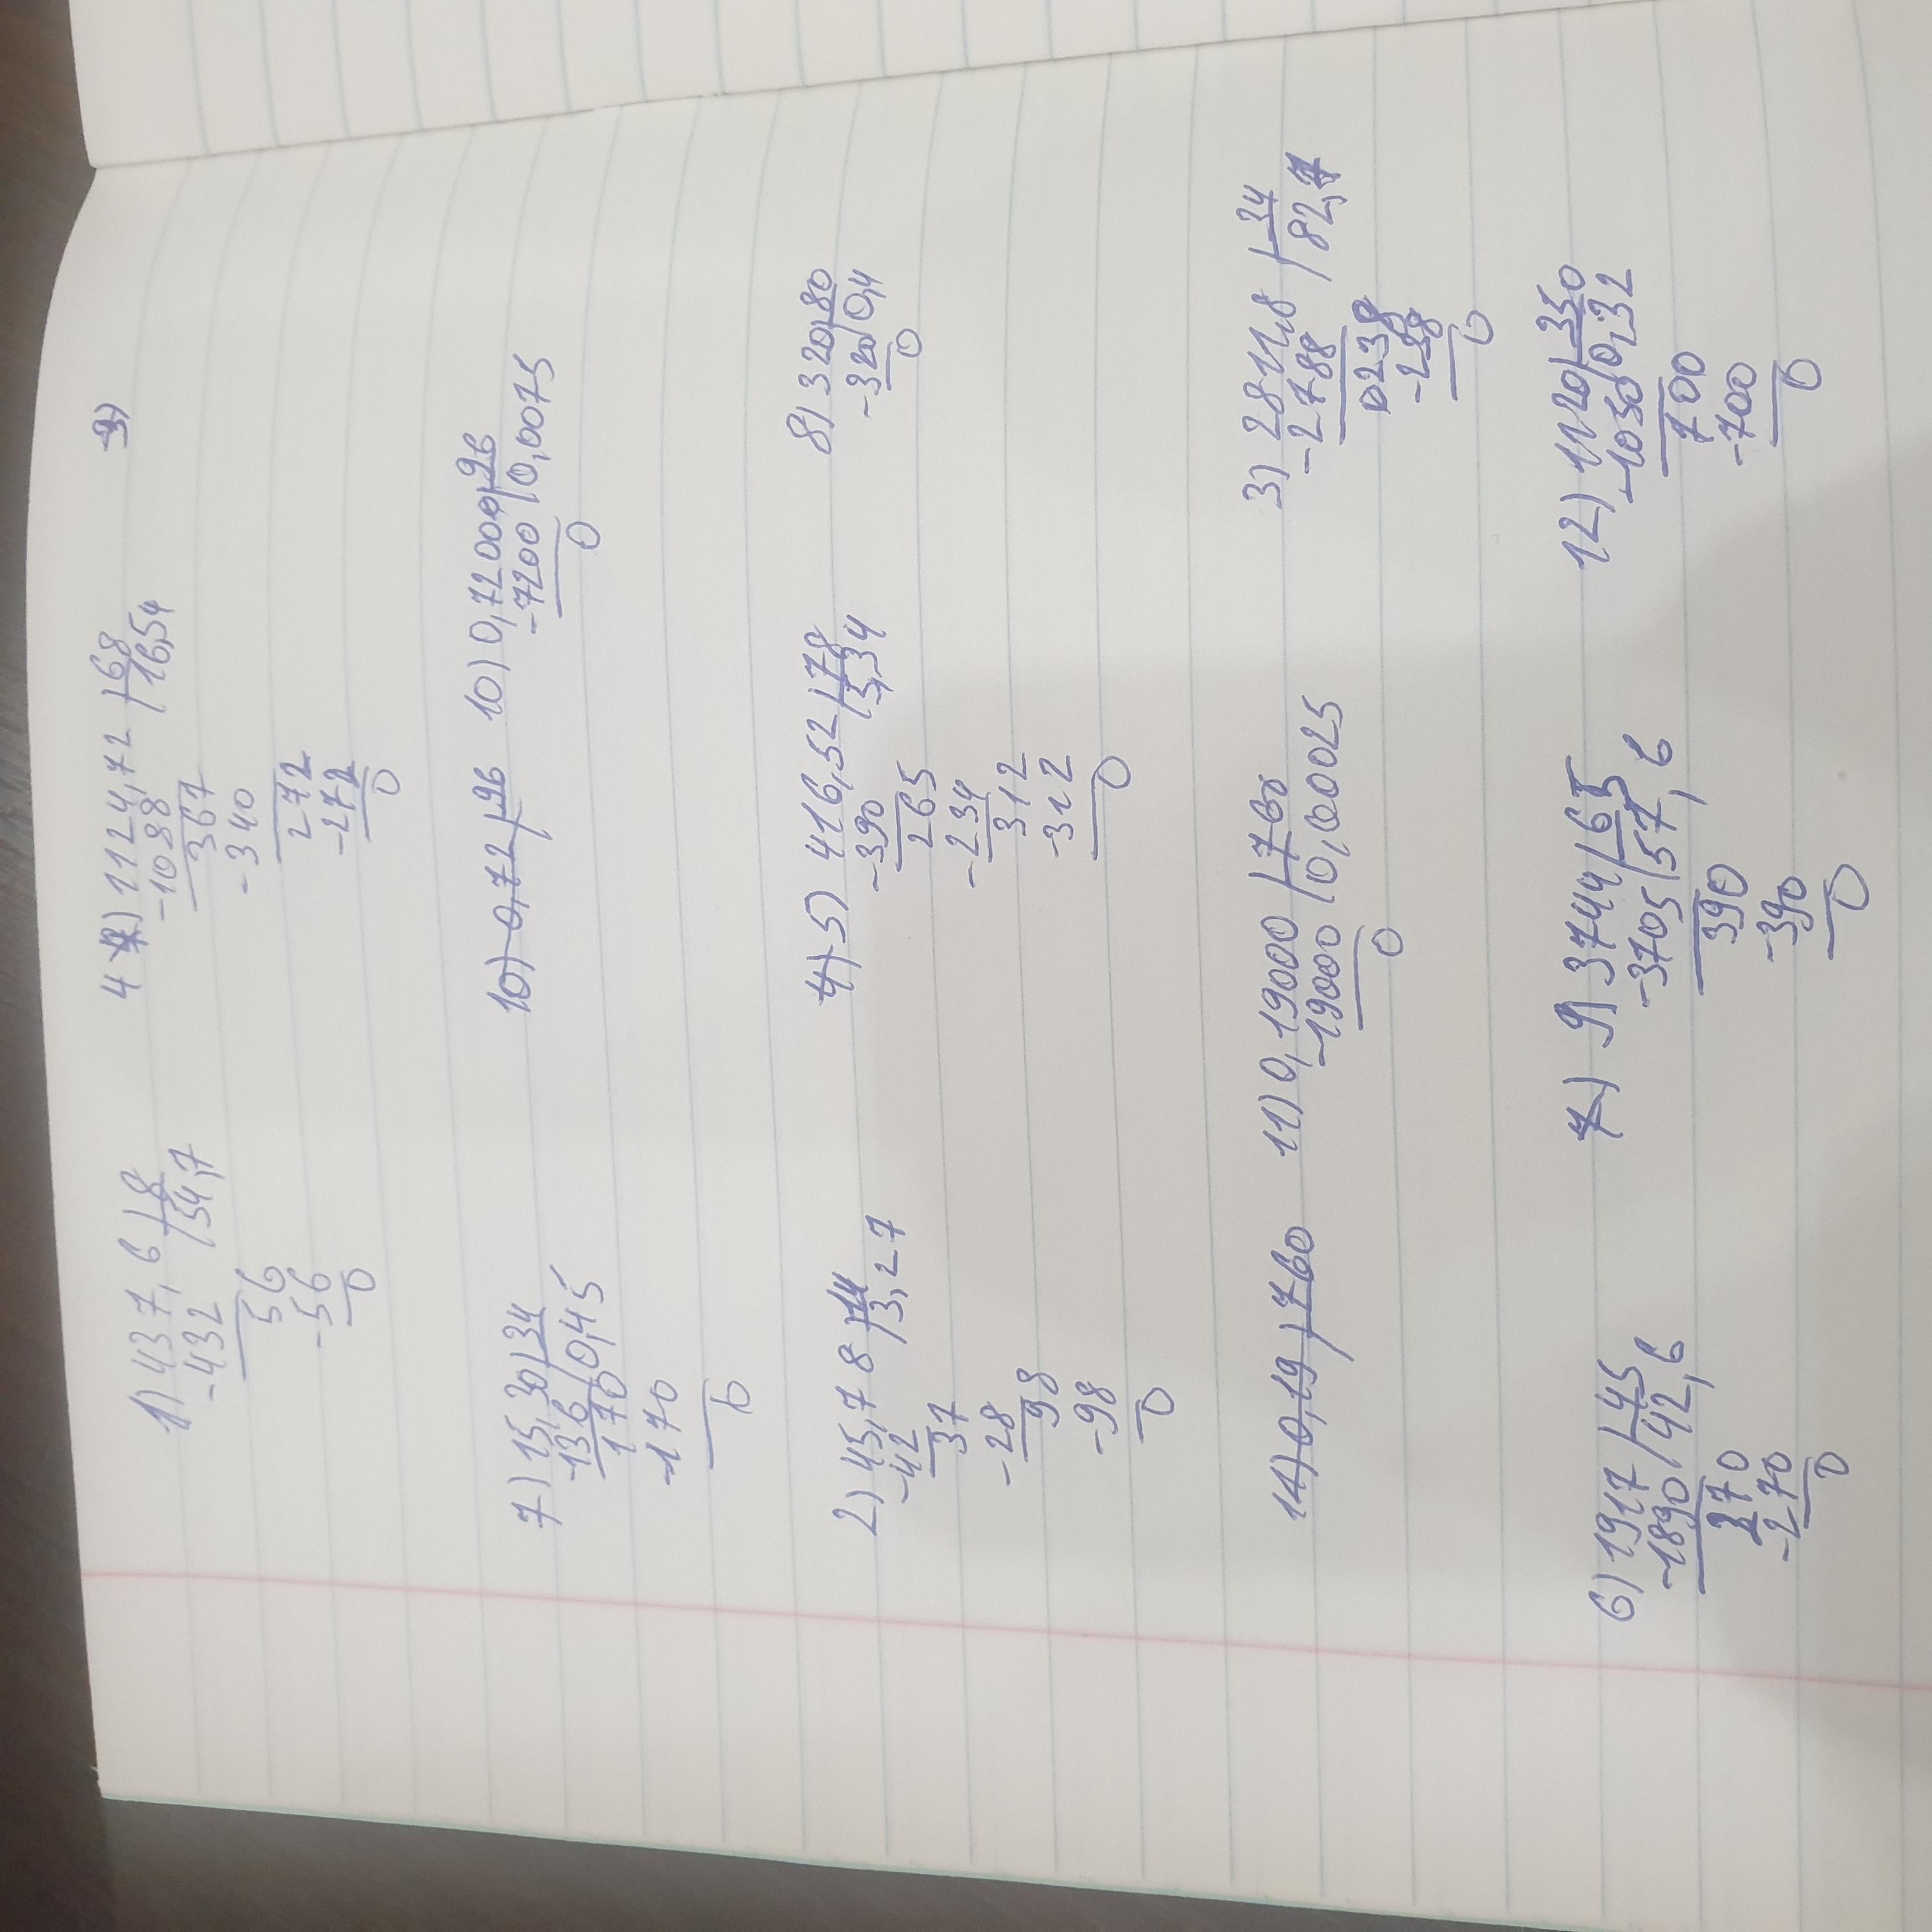 1) 437,6 | 8
-432 | 54,7
56
-56
0
4) 1124,72 | 68
-1088 | 16,54
367
-340
272
-272
0
3)
7) 15,30 | 34
-136 | 0,45
170
-170
0
10) 0,72 | 96
10) 0,72000 | 96
-7200 | 0,0075
0
2) 45,78 | 14
-42 | 3,27
37
-28
98
-98
0
4) 5) 416,52 | 78
-390 | 5,34
265
-234
312
-312
0
8) 320 | 80
-320 | 0,4
0
14) 0,19 | 760
11) 0,19000 | 760
-19000 | 0,00025
0
3) 2811,8 | 34
-2788 | 82,7
0238
-238
0
6) 1917 | 45
-1890 | 42,6
270
-270
0
7) 9) 3744 | 65
-3705 | 57,6
390
-390
0
12) 1120 | 350
-1050 | 0,32
700
-700
0